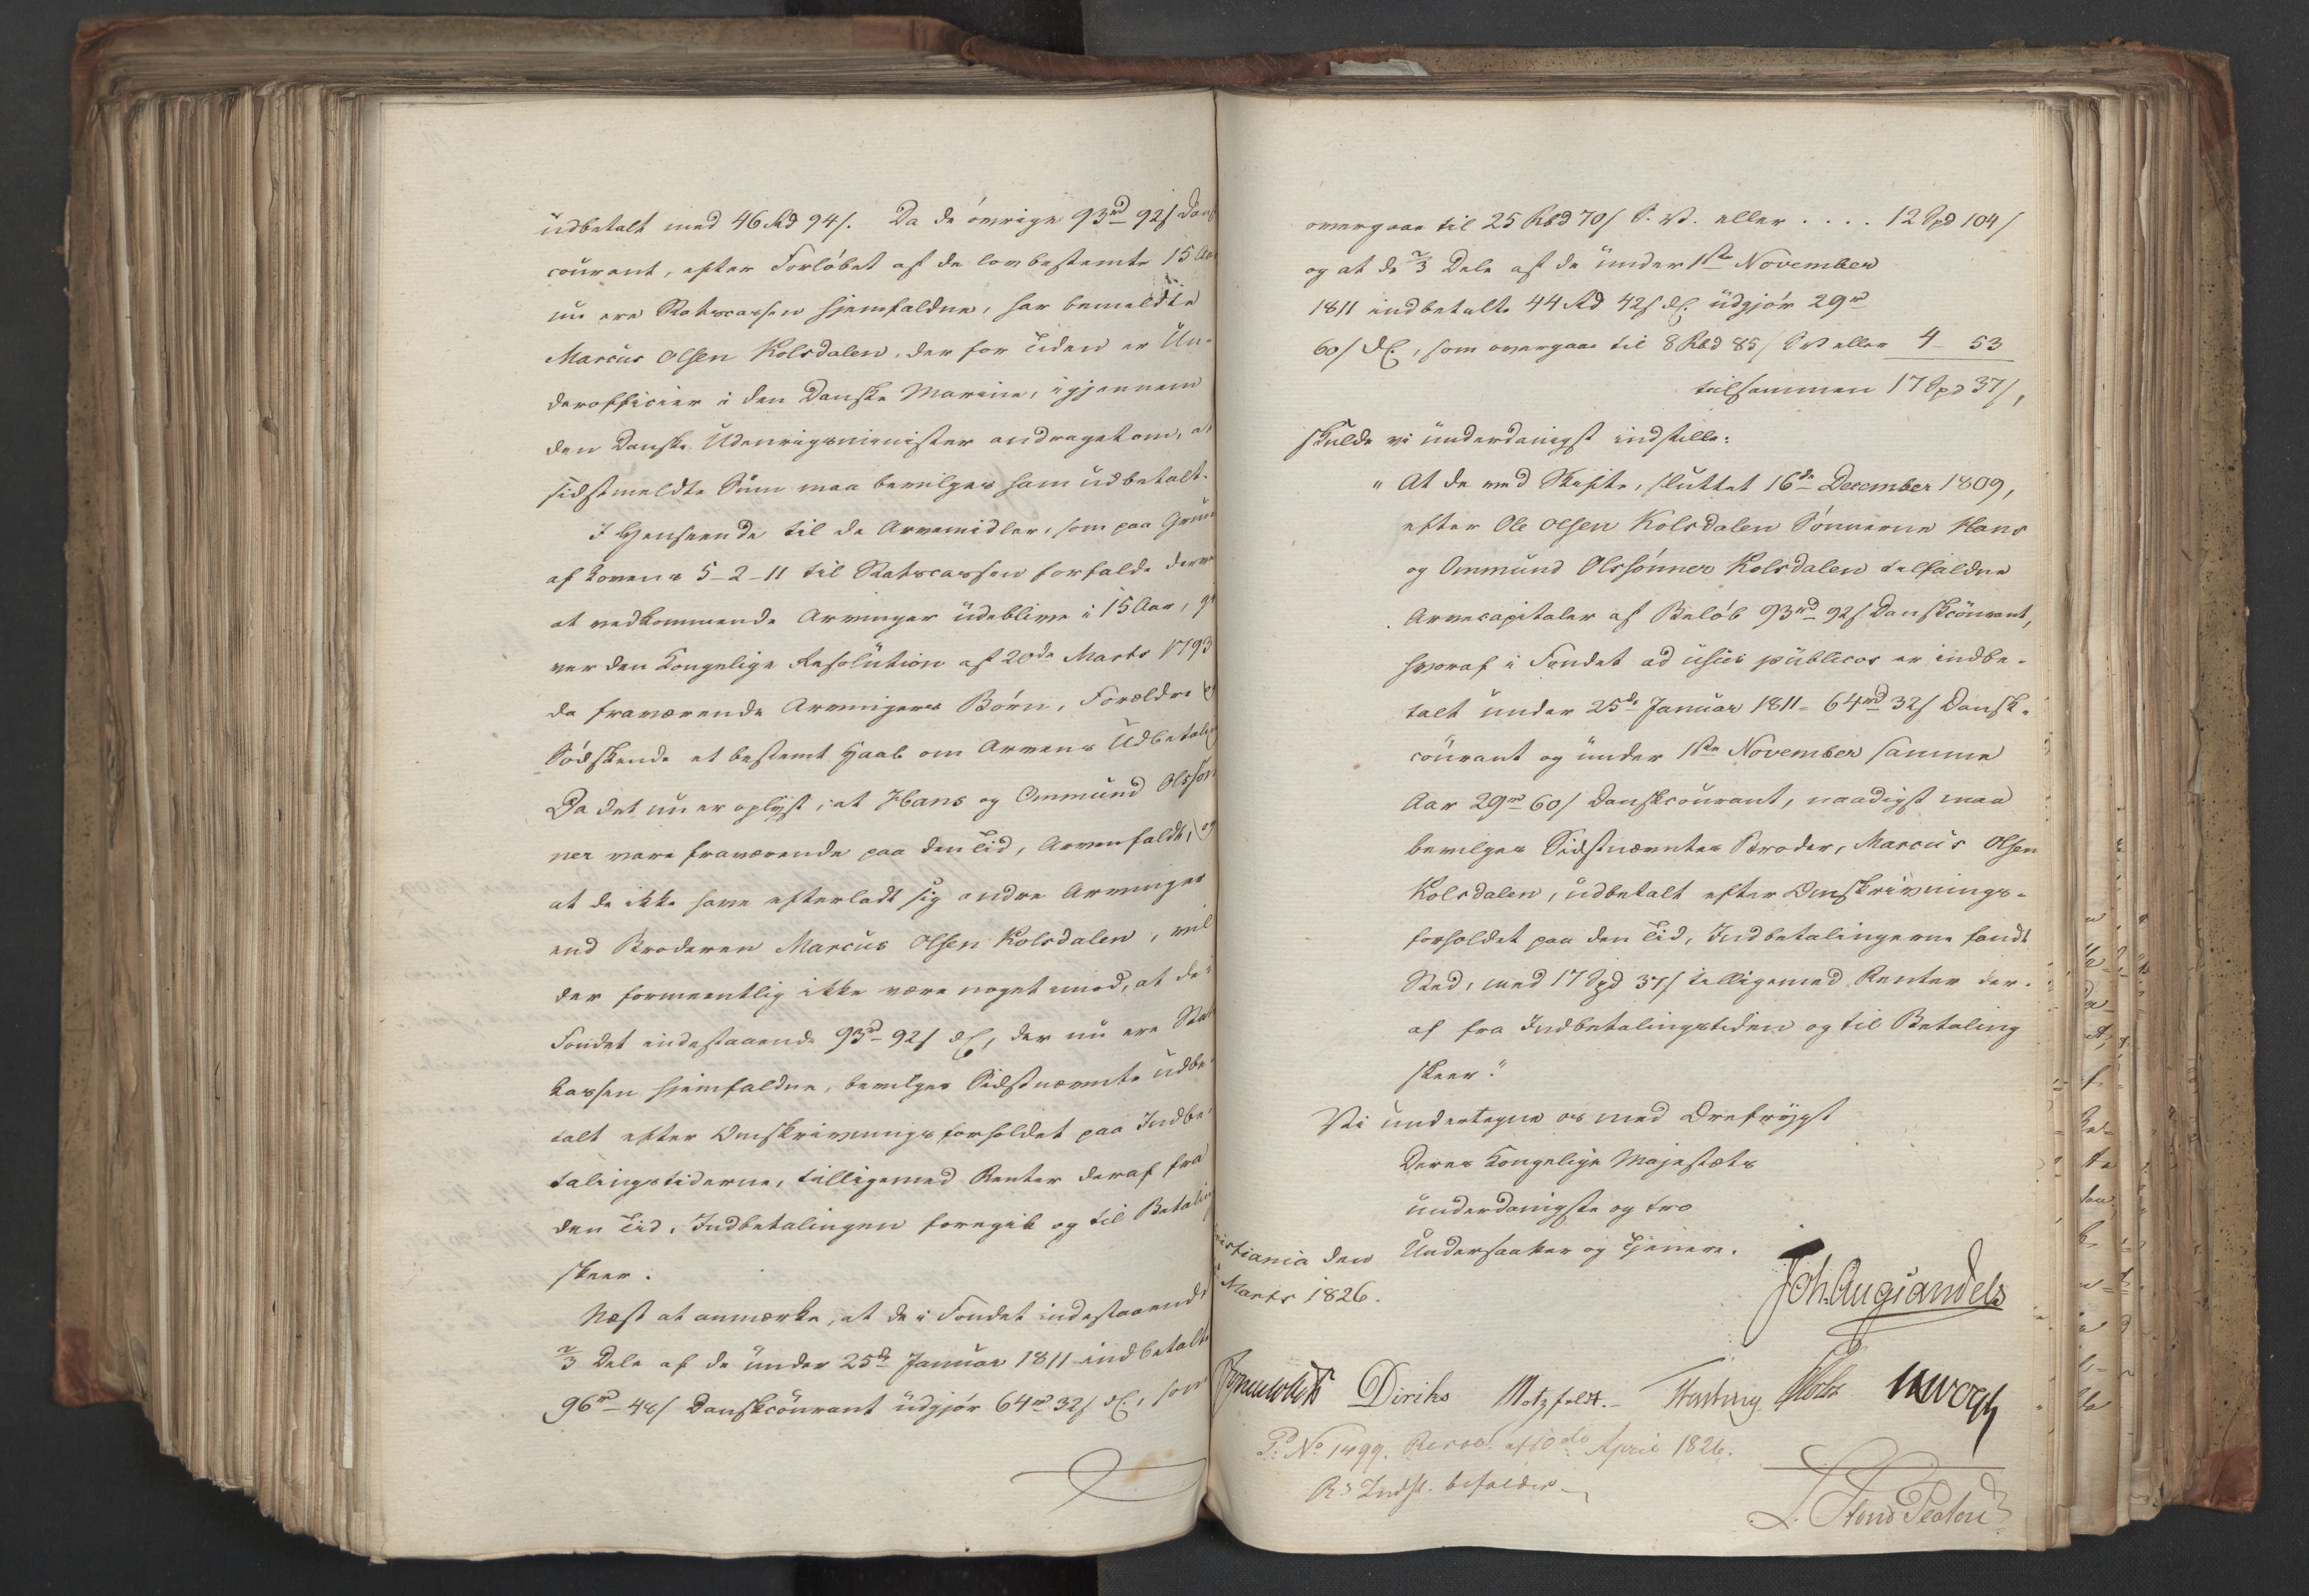 udbetalt med 46 Rd 94 s. Da de øvrige 93rd 92 s Dansk
courant, efter Forløbet af de lovbestemte 15 Aar
nu ere Statscassen hjemfaldne, har bemeldte
Marcus Olsen Kolsdalen, der for Tiden er Un-
derofficier i den Danske Marine, igjennem
den Danske Udenrigsminister andraget om, at
sidstmeldte Sum maa bevilges ham udbetalt.
I Henseende til de Arvemidler, som paa Grund
af Lovens 5-2-11 til Statscassen forfalde derved
at vedkommende Arvinger udeblive i 15 Aar, gi-
ver den Kongelige Resolution af 20de Marts 1793
de fraværende Arvingers Børn, Forældre og
Sødskende et bestemt Haab om Arvens Udbetaling
Da det nu er oplyst, at Hans og Ommund Olssøn-
ner vare fraværende paa den Tid, Arven faldt, og
at de ikke have efterladt sig andre Arvinger
end Broderen Marcus Olsen Kolsdalen, vil
der formeentlig ikke være noget imod, at de i
Fondet indestaaende 93rd 92 s dC, der nu ere Stats-
kassen hjemfaldne, bevilges Sidstnævnte udbe-
talt efter Omskrivningsforholdet paa Indbe-
talingstiderne, tilligemed Renter deraf fra
den Tid, Indbetalingen foregik og til Betaling
skeer.
Næst at anmærke, at de i Fondet indestaaende
2/3 Dele af de under 25de Januar 1811 indbetalte
96rd 48 s Danskcourant udgjør 64rd 32 s dC., som
overgaae til 25 Rbd 70 s S.V. eller .... 12 Spd 104 s
og at de 2/3 Dele af de under 1ste November
1811 indbetalte 44 Rd 42 s dC. udgjør 29rd
60 s dC., som overgaae til 8 Rbd 85 s SV eller 4 53
tilsammen 17 Spd 37 s,
skulde vi underdanigst indstille:
"At de ved Skifte, sluttet 16de December 1809,
efter Ole Olsen Kolsdalen Sønnerne Hans
og Ommund Olssønner Kolsdalen tilfaldne
Arvecapitaler af Beløb 93rd 92 s. Danskcourant,
hvoraf i Fondet ad usus publicos er indbe-
talt under 25de Januar 1811 - 64rd 32 s Dansk-
courant og under 1ste November samme
Aar 29rd 60 s Danskcourant, naadigst maa
bevilges Sidstnævntes Broder, Marcus Olsen
Kolsdalen, udbetalt efter Omskrivnings-
forholdet paa den Tid, Indbetalingerne fandt
Sted, med 17 Spd 37 s tilligemed Renter der-
af fra Indbetalingstiden og til Betaling
skeer."
Vi undertegne os med Ærefrygt
Deres Kongelige Majestæts
underdanigste og tro
Undersaatter og Tjenere.
istiania den
Marts 1826.
Joh. Aug Sandels
Sommerhielm Diriks Motzfeldt. Treschow Holst
P. No 1499. Resol. af 10de April 1826.
Rs Indst. bifaldes